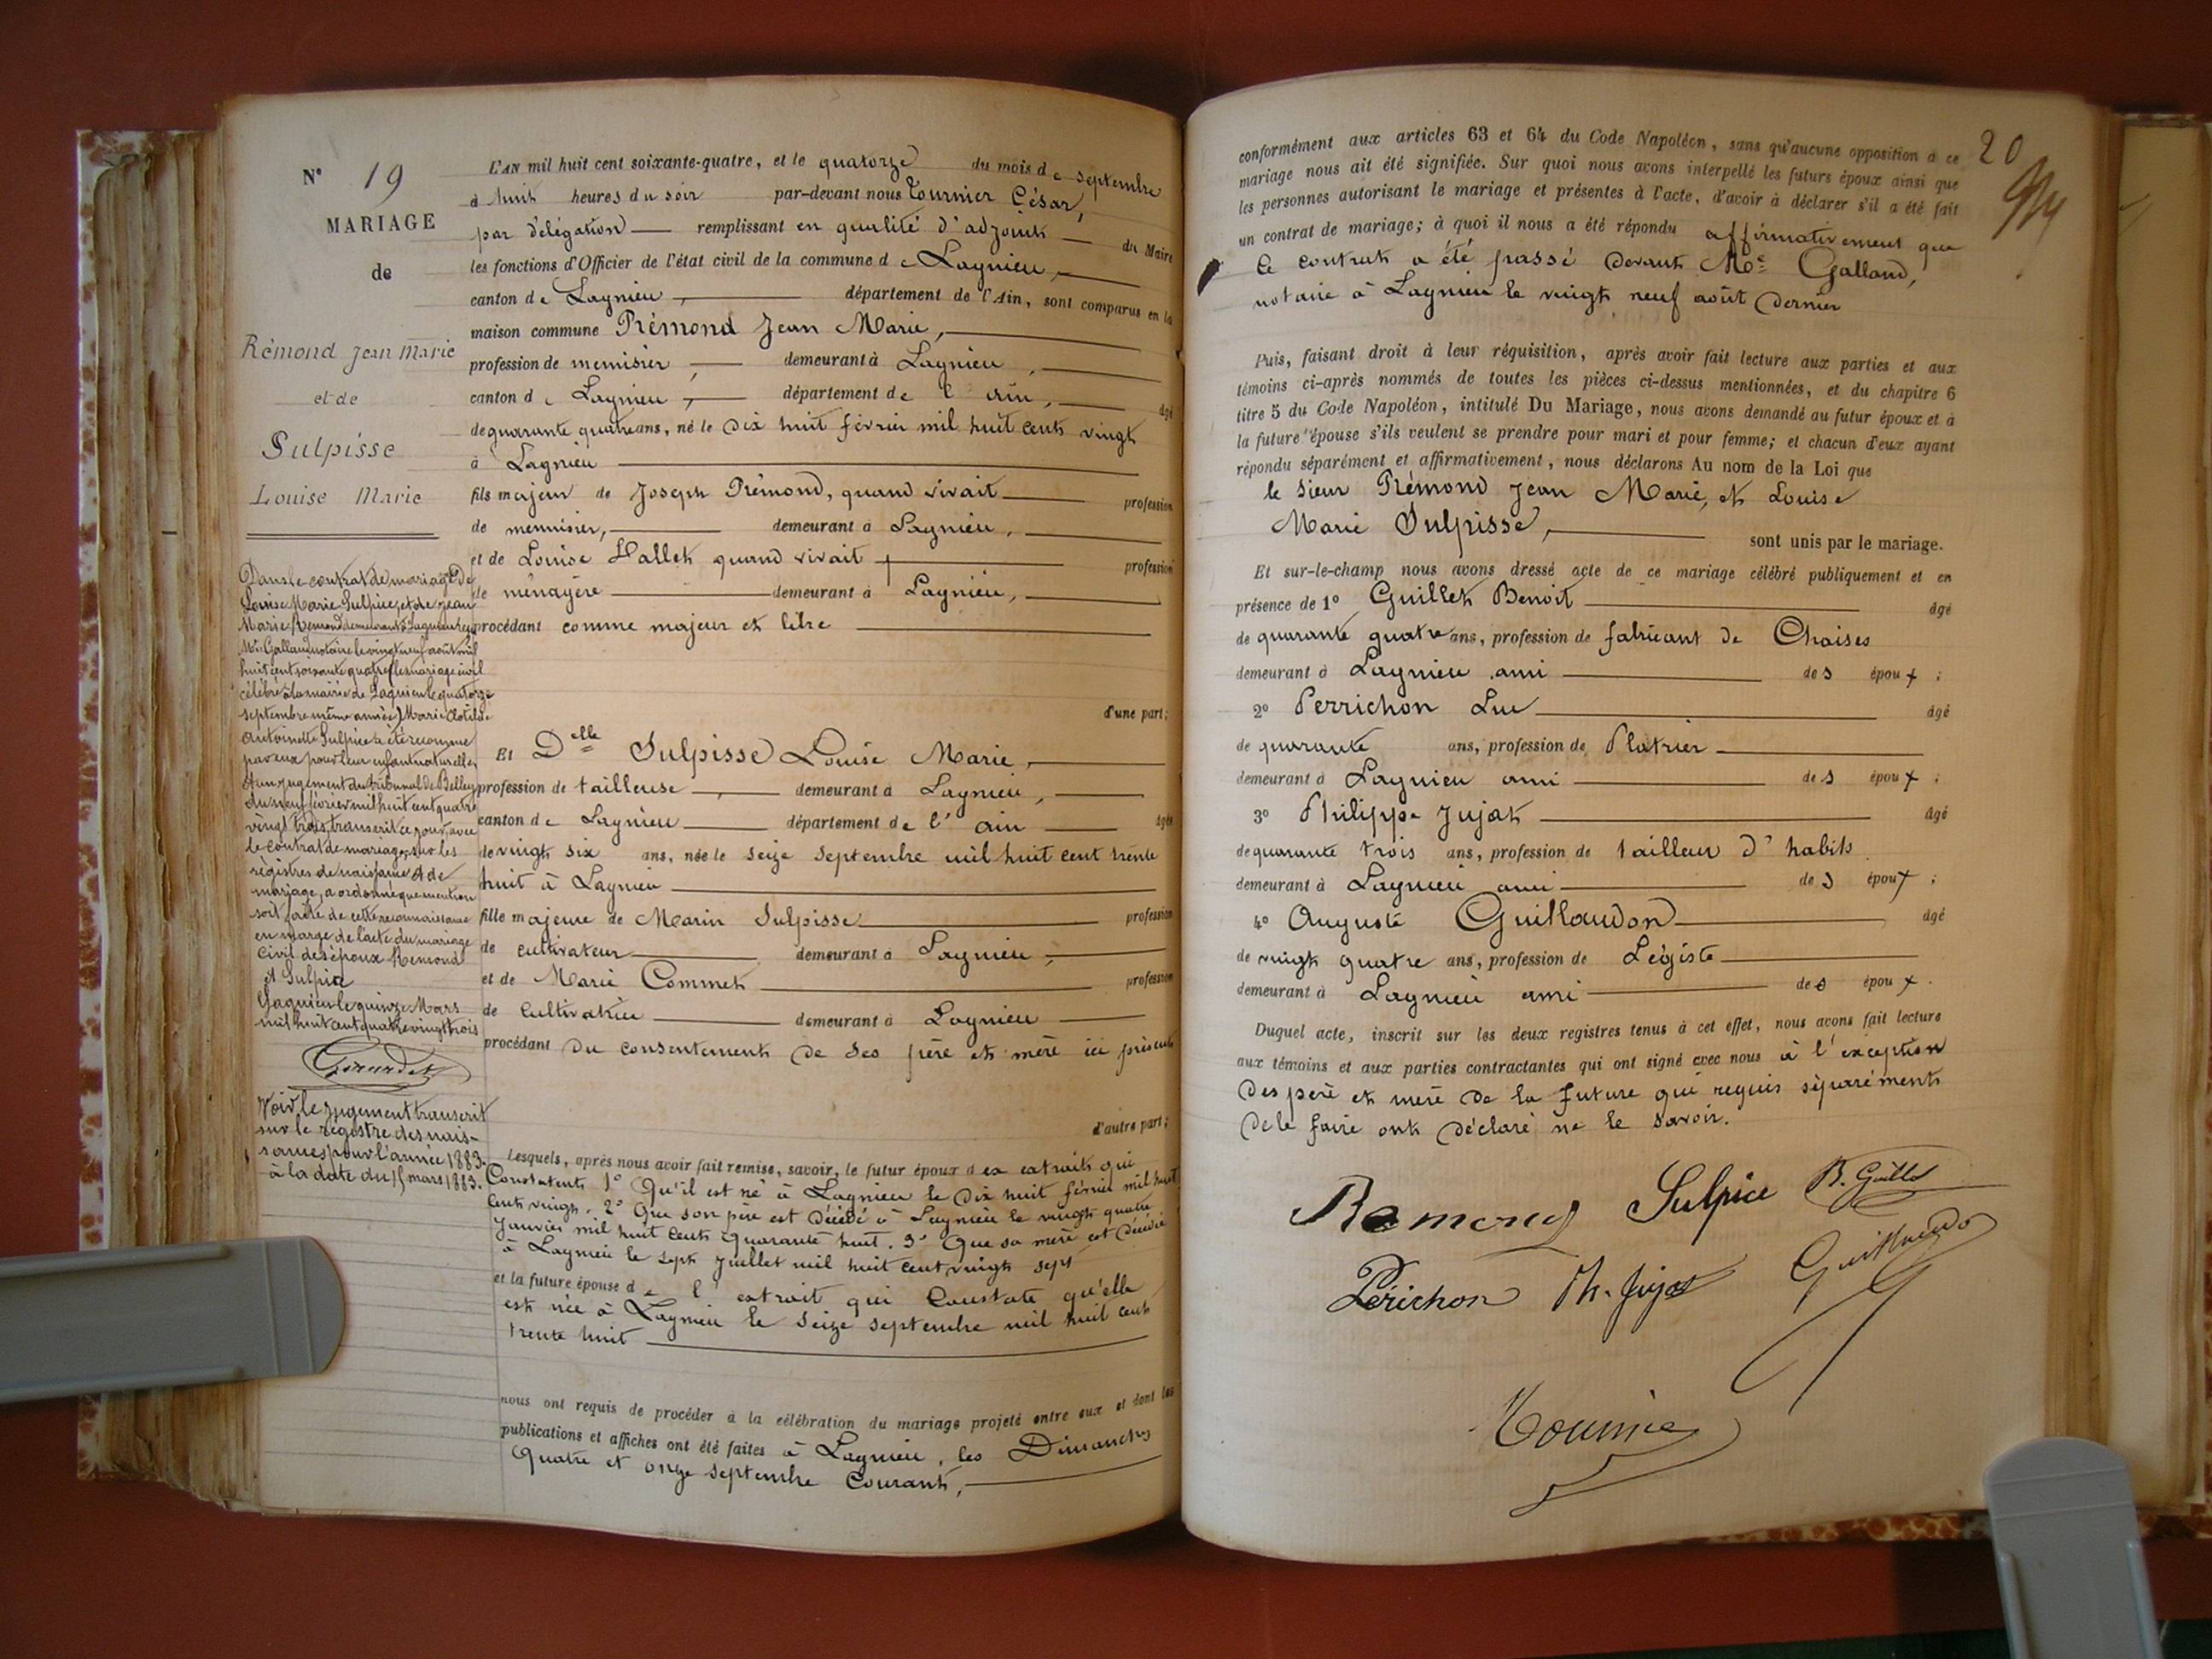 N° 19
MARIAGE
de
Rémond Jean Marie
et de
Sulpisse
Louise Marie
Dans le contrat de mariage de
Louise Marie Sulpice, et de Jean
Marie Remond demeurant à Lagnieu reçu
Me Galland notaire le vingt neuf août mil
huit cent soixante quatre (les mariage civil
célébré à la mairie de Lagnieu le quatorze
septembre même année) Marie Clotilde
Antoinette Sulpice a été reconnue
par eux pour leur enfant naturelle,
et un jugement du tribunal de Belley
du neuf février mil huit cent quatre
vingt trois, transcrit ce jour, avec
le contrat de mariage, sur les
régistres de naissance et de
mariage, a ordonné que mention
soit faite de cette reconnaissance
en marge de l'acte du mariage
civil des époux Remond
et Sulpice
Lagnieu le quinze Mars
mil huit cent quatre vingt trois
Voir le jugement transcrit
sur le régistre des nais-
sances pour l'année 1883.
à la date du 15 mars 1883.
L'AN mil huit cent soixante-quatre, et le quatorze du mois de septembre
à huit heures du soir par-devant nous Tournier César,
par délégation remplissant en qualité d'adjoint du Maire
les fonctions d'Officier de l'état civil de la commune de Lagnieu,
canton de Lagnieu, département de l'Ain, sont comparus en la
maison commune Rémond Jean Marie,
profession de menuisier, demeurant à Lagnieu,
canton de Lagnieu, département de l'ain, âgé
de quarante quatre ans, né le dix huit février mil huit cent vingt
à Lagnieu
fils majeur de Joseph Rémond, quand vivait profession
de menuisier, demeurant à Lagnieu,
et de Louise Hallet quand vivait profession
de ménagère demeurant à Lagnieu,
procédant comme majeur et libre
d'une part;
Et Delle Sulpisse Louise Marie,
profession de tailleuse, demeurant à Lagnieu,
canton de Lagnieu département de l'ain âgée
de vingt six ans, née le seize septembre mil huit cent trente
huit à Lagnieu
fille majeure de Marin Sulpisse profession
de cultivateur demeurant à Lagnieu,
et de Marie Commet profession
de cultivatrice demeurant à Lagnieu
procédant du consentement de ses père et mère ici présents
d'autre part;
Lesquels, après nous avoir fait remise, savoir, le futur époux des extraits qui
Constatent 1° Qu'il est né à Lagnieu le dix huit février mil huit
cent vingt. 2° Que son père est décédé à Lagnieu le vingt quatre
Janvier mil huit cent quarante huit. 3° Que sa mère est décédée
à Lagnieu le sept Juillet mil huit cent vingt sept
et la future épouse de l'extrait qui Constate qu'elle
est née à Lagnieu le seize septembre mil huit cent
trente huit
nous ont requis de procéder à la célébration du mariage projeté entre eux et dont les
publications et affiches ont été faites à Lagnieu, les Dimanches
Quatre et onze septembre Courant,
20
conformément aux articles 63 et 64 du Code Napoléon, sans qu'aucune opposition à ce
mariage nous ait été signifiée. Sur quoi nous avons interpellé les futurs époux ainsi que
les personnes autorisant le mariage et présentes à l'acte, d'avoir à déclarer s'il a été fait
un contrat de mariage; à quoi il nous a été répondu affirmativement que
le contrat a été passé devant Me Galland,
notaire à Lagnieu le vingt neuf août dernier
Puis, faisant droit à leur réquisition, après avoir fait lecture aux parties et aux
témoins ci-après nommés de toutes les pièces ci-dessus mentionnées, et du chapitre 6
titre 5 du Code Napoléon, intitulé Du Mariage, nous avons demandé au futur époux et à
la future épouse s'ils veulent se prendre pour mari et pour femme; et chacun d'eux ayant
répondu séparément et affirmativement, nous déclarons Au nom de la Loi que
le Sieur Rémond Jean Marie, et Louise
Marie Sulpisse, sont unis par le mariage.
Et sur-le-champ nous avons dressé acte de ce mariage célébré publiquement et en
présence de 1° Guillet Benoît âgé
de quarante quatre ans, profession de fabricant de Chaises
demeurant à Lagnieu ami des époux;
2° Perrichon Luc âgé
de quarante ans, profession de Platrier
demeurant à Lagnieu ami des époux;
3° Philippe Jujat âgé
de quarante trois ans, profession de tailleur d'habits
demeurant à Lagnieu ami des époux;
4° Auguste Guillaudon âgé
de vingt quatre ans, profession de Légiste
demeurant à Lagnieu ami des époux.
Duquel acte, inscrit sur les deux registres tenus à cet effet, nous avons fait lecture
aux témoins et aux parties contractantes qui ont signé avec nous à l'exception
des père et mère de la future qui requis séparément
de le faire ont déclaré ne le savoir.
Remond Sulpice B. Guillet
Périchon Ph. Jujat
Tournier